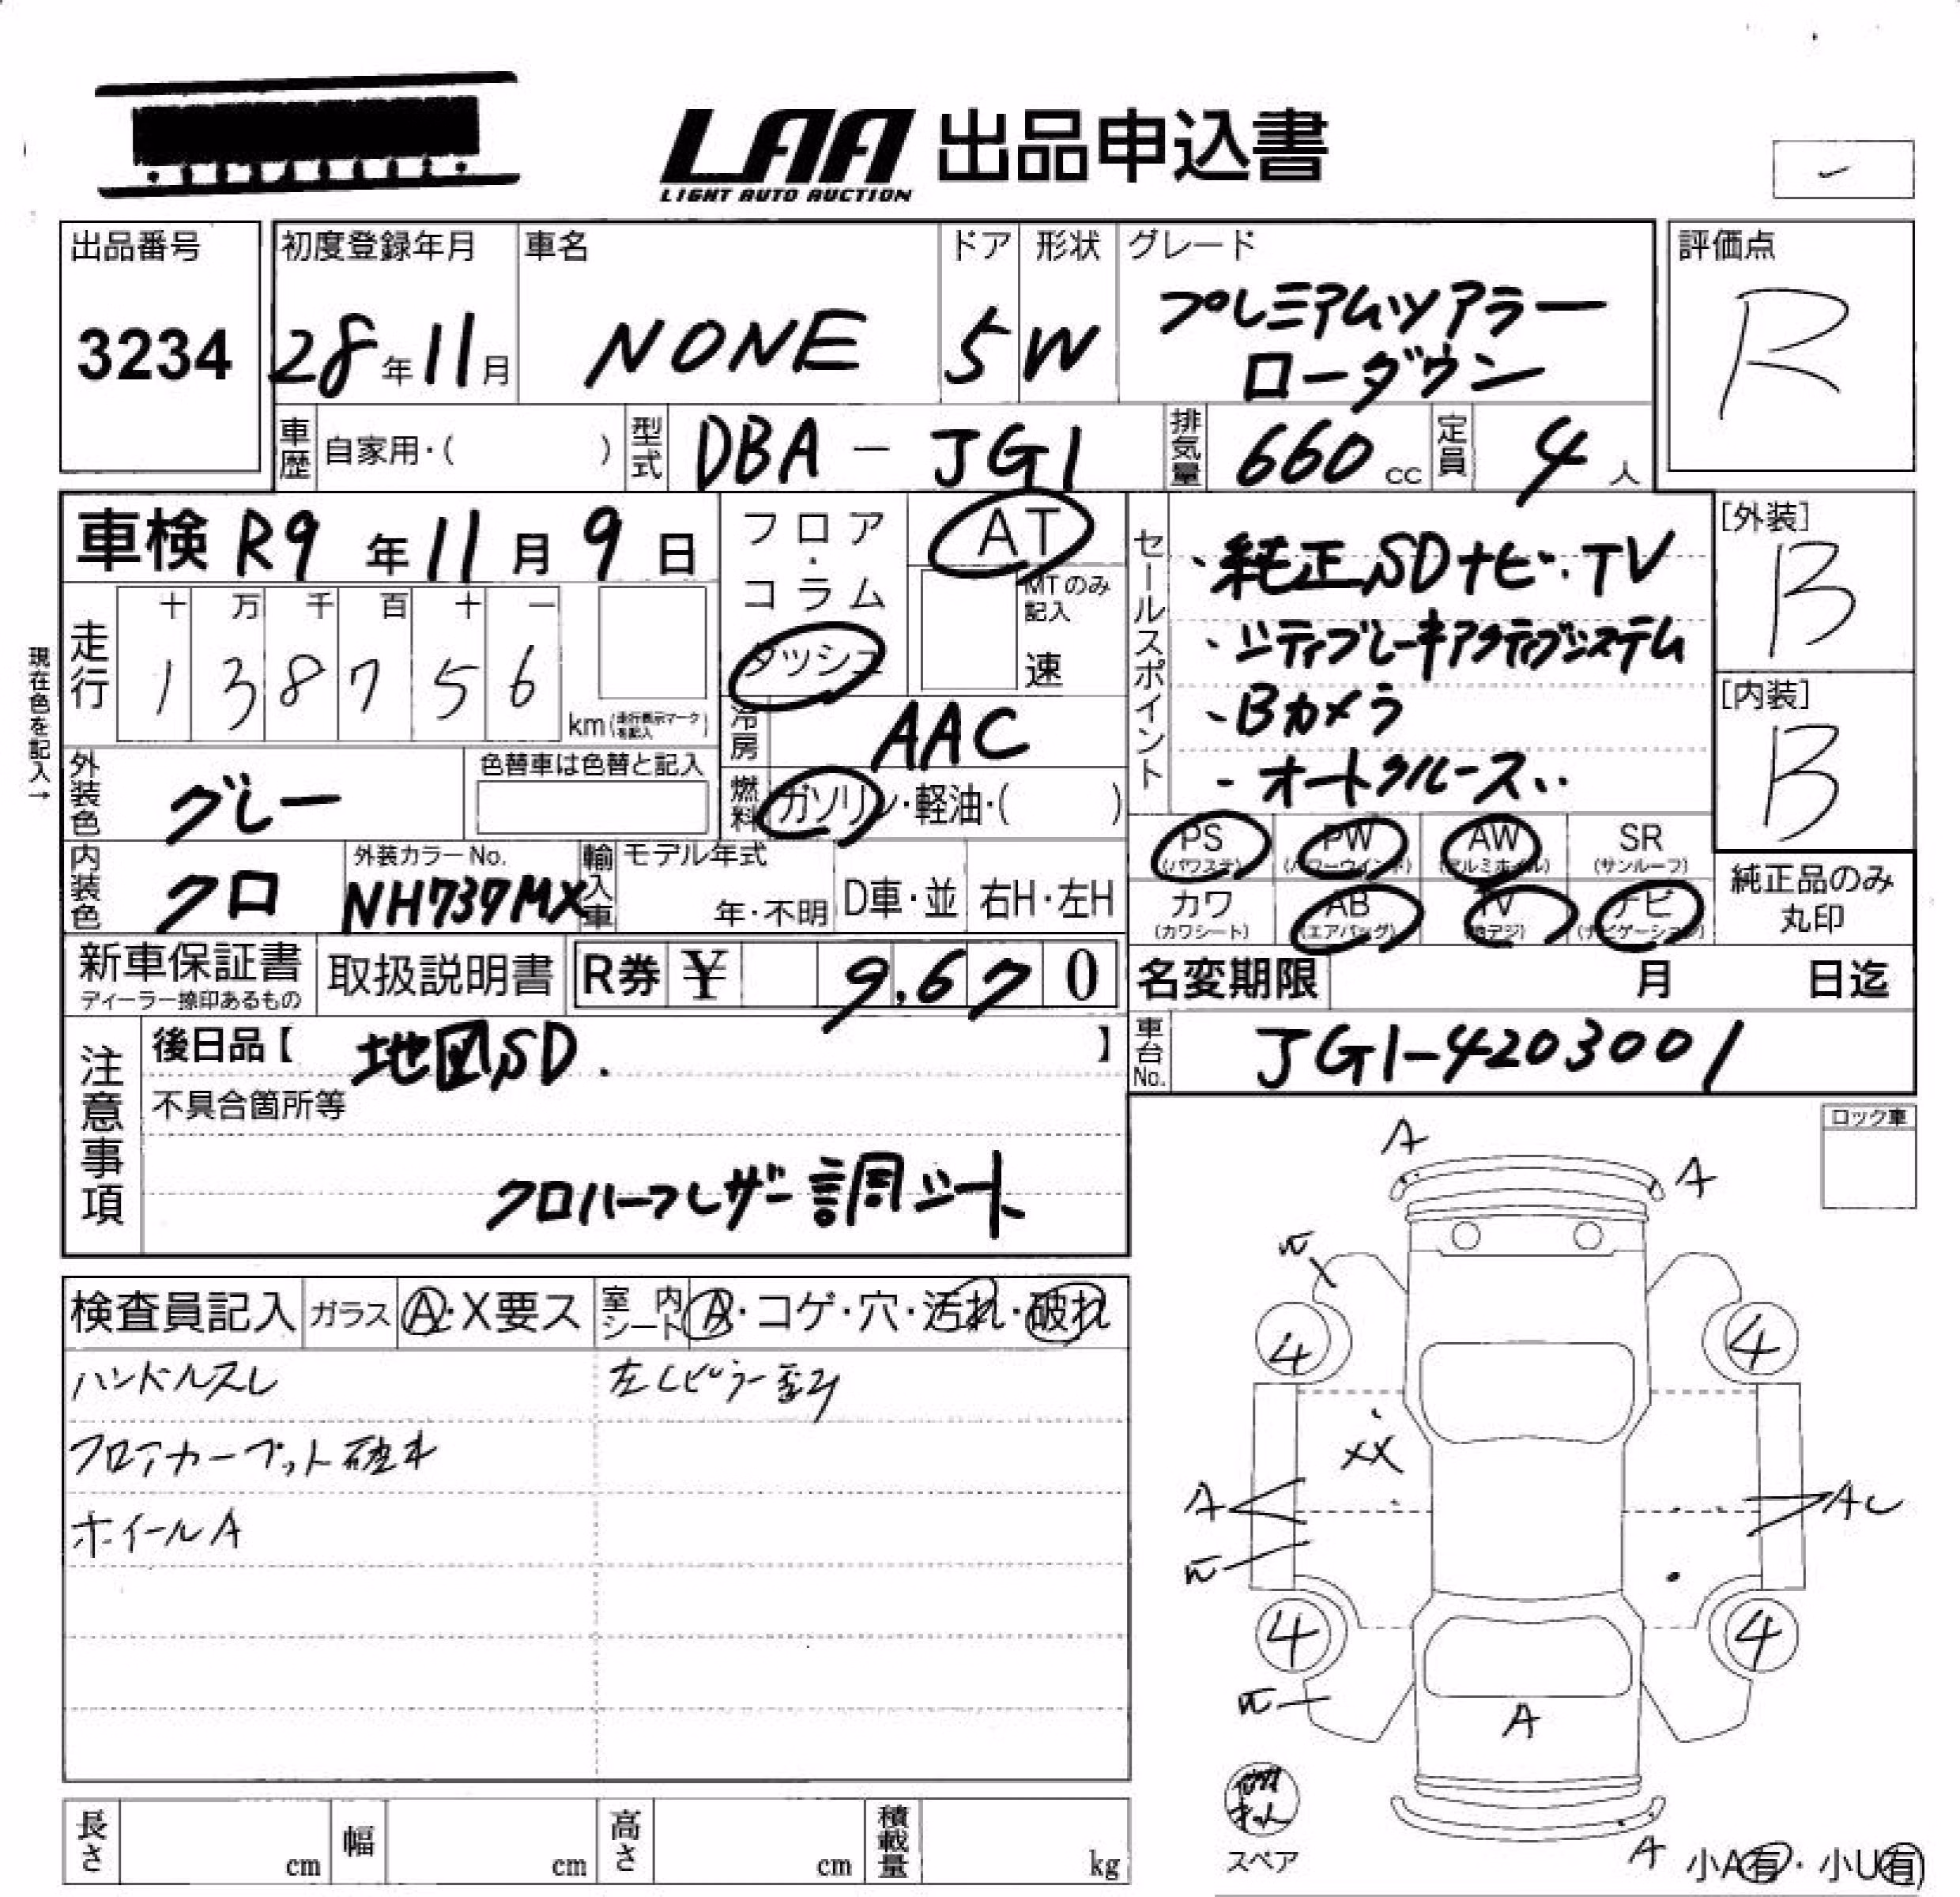 LAA 出品申込書
LIGHT AUTO AUCTION
出品番号
3234
初度登録年月
28年11月
車名
NONE
ドア
5
形状
W
グレード
プレミアムツアラー
ローダウン
評価点
R
車歴 自家用・( )
型式 DBA - JG1
排気量 660 cc
定員 4 人
車検 R9年11月9日
フロア・コラム
ダッシュ
AT
MTのみ記入
速
セールスポイント
・純正SDナビ・TV
・シティブレーキアクティブシステム
・Bカメラ
・オートクルーズ
[外装]
B
[内装]
B
現在色を記入→
走行
十 万 千 百 十 一
1 3 8 7 5 6
km(走行表示マークを記入)
冷房 AAC
外装色 グレー
色替車は色替と記入
燃料 ガソリン・軽油・( )
内装色 クロ
外装カラーNo.
NH737MX
輸入車
モデル年式
年・不明
D車・並
右H・左H
PS (パワステ)
PW (パワーウインド)
AW (アルミホイル)
SR (サンルーフ)
カワ (カワシート)
AB (エアバッグ)
TV (地デジ)
ナビ (ナビゲーション)
純正品のみ
丸印
新車保証書
ディーラー捺印あるもの
取扱説明書
R券 ¥ 9,670
名変期限 月 日迄
注意事項
後日品【 地図SD. 】
不具合箇所等
クロハーフレザー調シート
車台No. JG1-4203001
ロック車
検査員記入
ガラス A・X要ス
室内シート A・コゲ・穴・汚れ・破れ
ハンドルスレ
左Cピラー歪み
フロアカーペット破れ
ホイールA
A
A
4
4
XX
A
A
4
4
A
スペア
A
小A有・小U有
長さ cm
幅 cm
高さ cm
積載量 kg